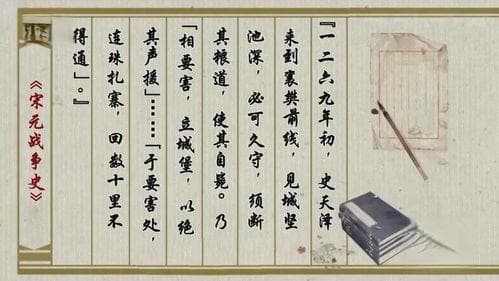 『一二六九年初，史天泽
来到襄樊前线，见城坚
池深，必可久守，须断
其粮道，使其自毙。乃
「相要害，立城堡，以绝
其声援」……「于要害处，
连珠扎寨，回数十里不
得通」。』
《宋元战争史》